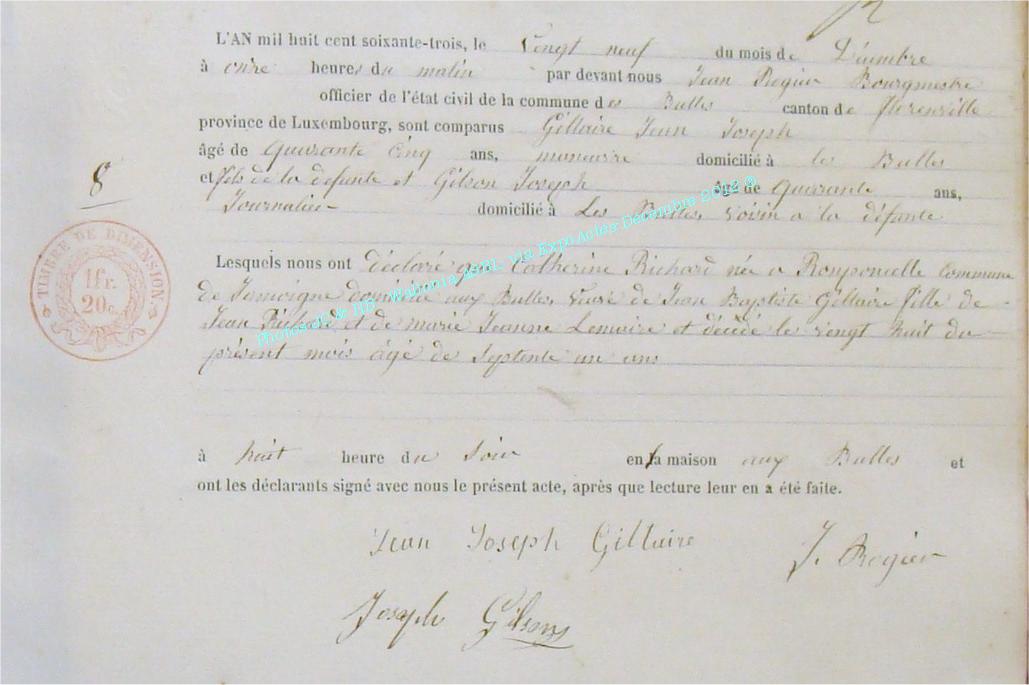 L'AN mil huit cent soixante-trois, le Vengt neuf du mois de Décembre
à onze heures du matin par devant nous Jean Rogier Bourgmestre
officier de l'état civil de la commune des Bulles canton de florenville
province de Luxembourg, sont comparus Gillaire Jean Joseph
âgé de Quarante Cinq ans, manouvre domicilié à les Bulles
et fils de la defunte et Gilson Joseph âgé de Quarante ans,
Journalier domicilié à Les Bulles, voisin a la défunte
Lesquels nous ont déclaré que Catherine Richard née a Romponcelle commune
de Jamoigne domicilié aux Bulles, veuve de Jean Baptiste Gillaire fille de
Jean Richard et de marie Jeanne Lemaire et décédé le vengt huit du
présent mois âgé de Septente un ans
à huit heure du Soir en la maison aux Bulles et
ont les déclarants signé avec nous le présent acte, après que lecture leur en a été faite.
Jean Joseph Gillaire
J. Rogier
Joseph Gilson
8
TIMBRE DE DIMENSION.
1fr.
20c.
Photos & HB - Wallonia ASBL, via ExpoActes Décembre 2012 ©